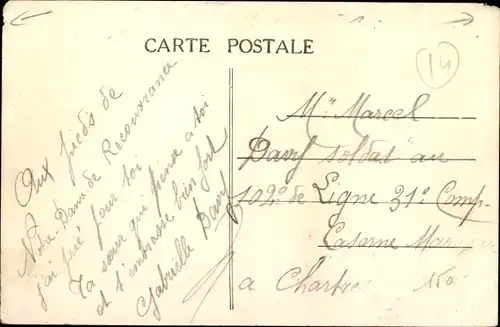 CARTE POSTALE
14
Aux pieds de
Notre-Dame de Recouvrance
j'ai prié pour toi
Ta sœur qui pense a toi
et t'embrasse bien fort
Gabrielle Davy
Mr Marcel
Davy soldat au
102e de Ligne 31e Comp
Caserne
a Chartres